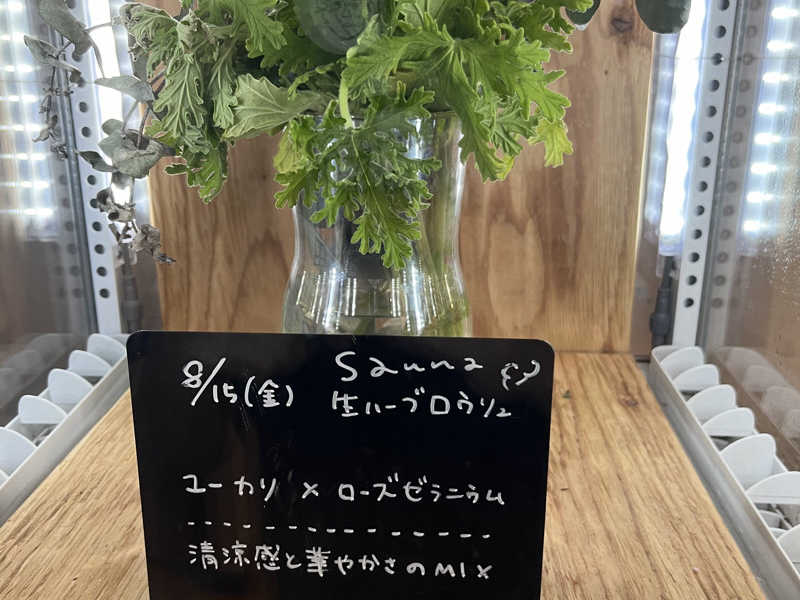 8/15(金) Sauna
生ハーブロウリュ
ユーカリ × ローズゼラニウム
清涼感と華やかさのMIX